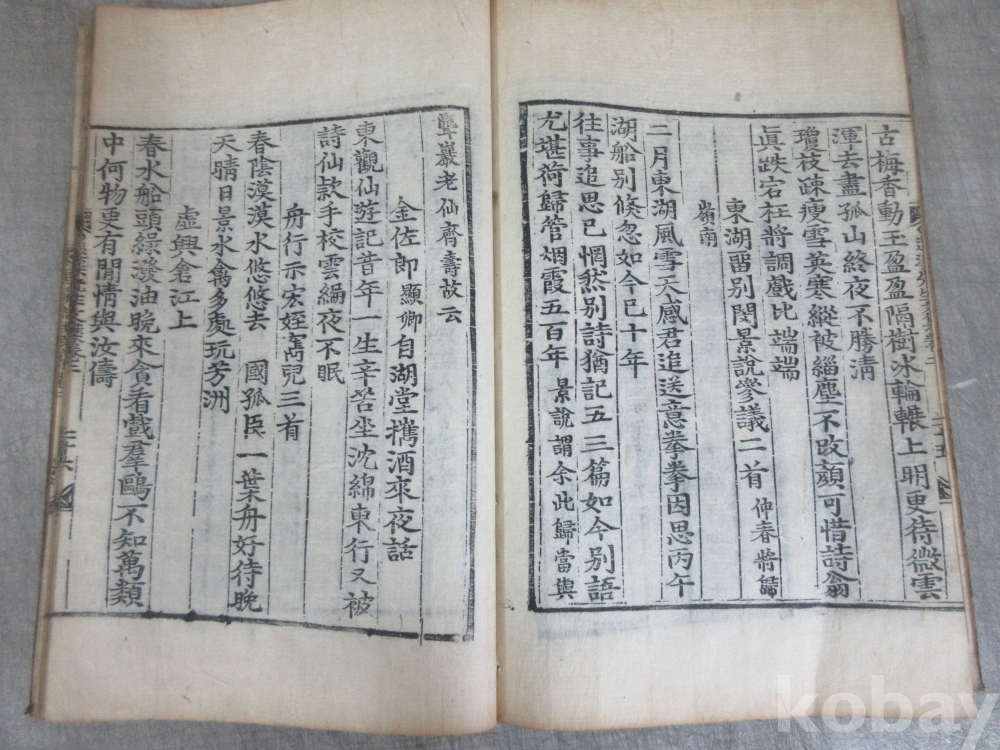 古梅香動玉盈盈隔樹氷輪輾上明更待微雲
渾去盡孤山終夜不勝淸
瓊枝疎瘦雪英寒縱被緇塵不改顔可惜詩翁
眞跌宕枉將調戲比端端
東湖留別閔景說參議二首 仲春將歸
嶺南
二月東湖風雪天感君追送意拳拳因思丙午
湖船別倏忽如今已十年
往事追思已惘然別詩猶記五三篇如今別語
尤堪荷歸管烟霞五百年 景說謂余此歸當與
聾巖老仙齊壽故云
金佐郎顯卿自湖堂携酒來夜話
東觀仙遊記昔年一生辛苦坐沈綿東行又被
詩仙款手校雲編夜不眠
舟行示宏姪寯兒三首
春陰漠漠水悠悠去國孤臣一葉舟好待晚
天晴日景水禽多處玩芳洲
虛興滄江上
春水船頭綠潑油晚來貪看戲羣鷗不知萬類
中何物更有閒情與汝儔
kobay